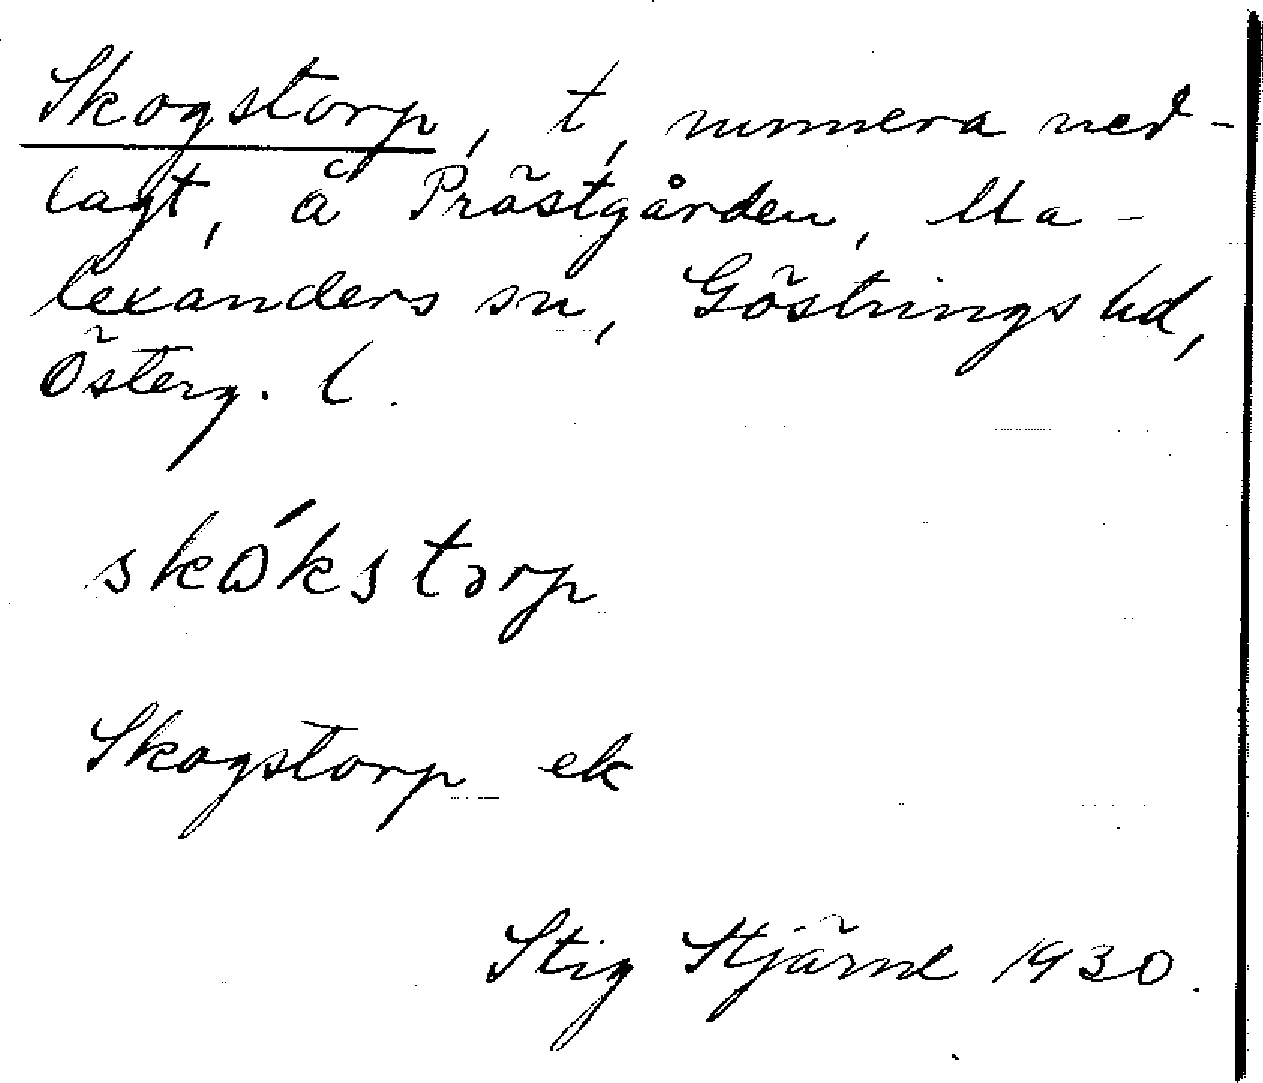 Skogstorp, t, numera ned-
lagt, å Prästgården, Ma-
lexanders sn, Göstrings hd,
Österg. l.
skɷ́kstɔrp
Skogstorp ek
Stig Stjärne 1930.